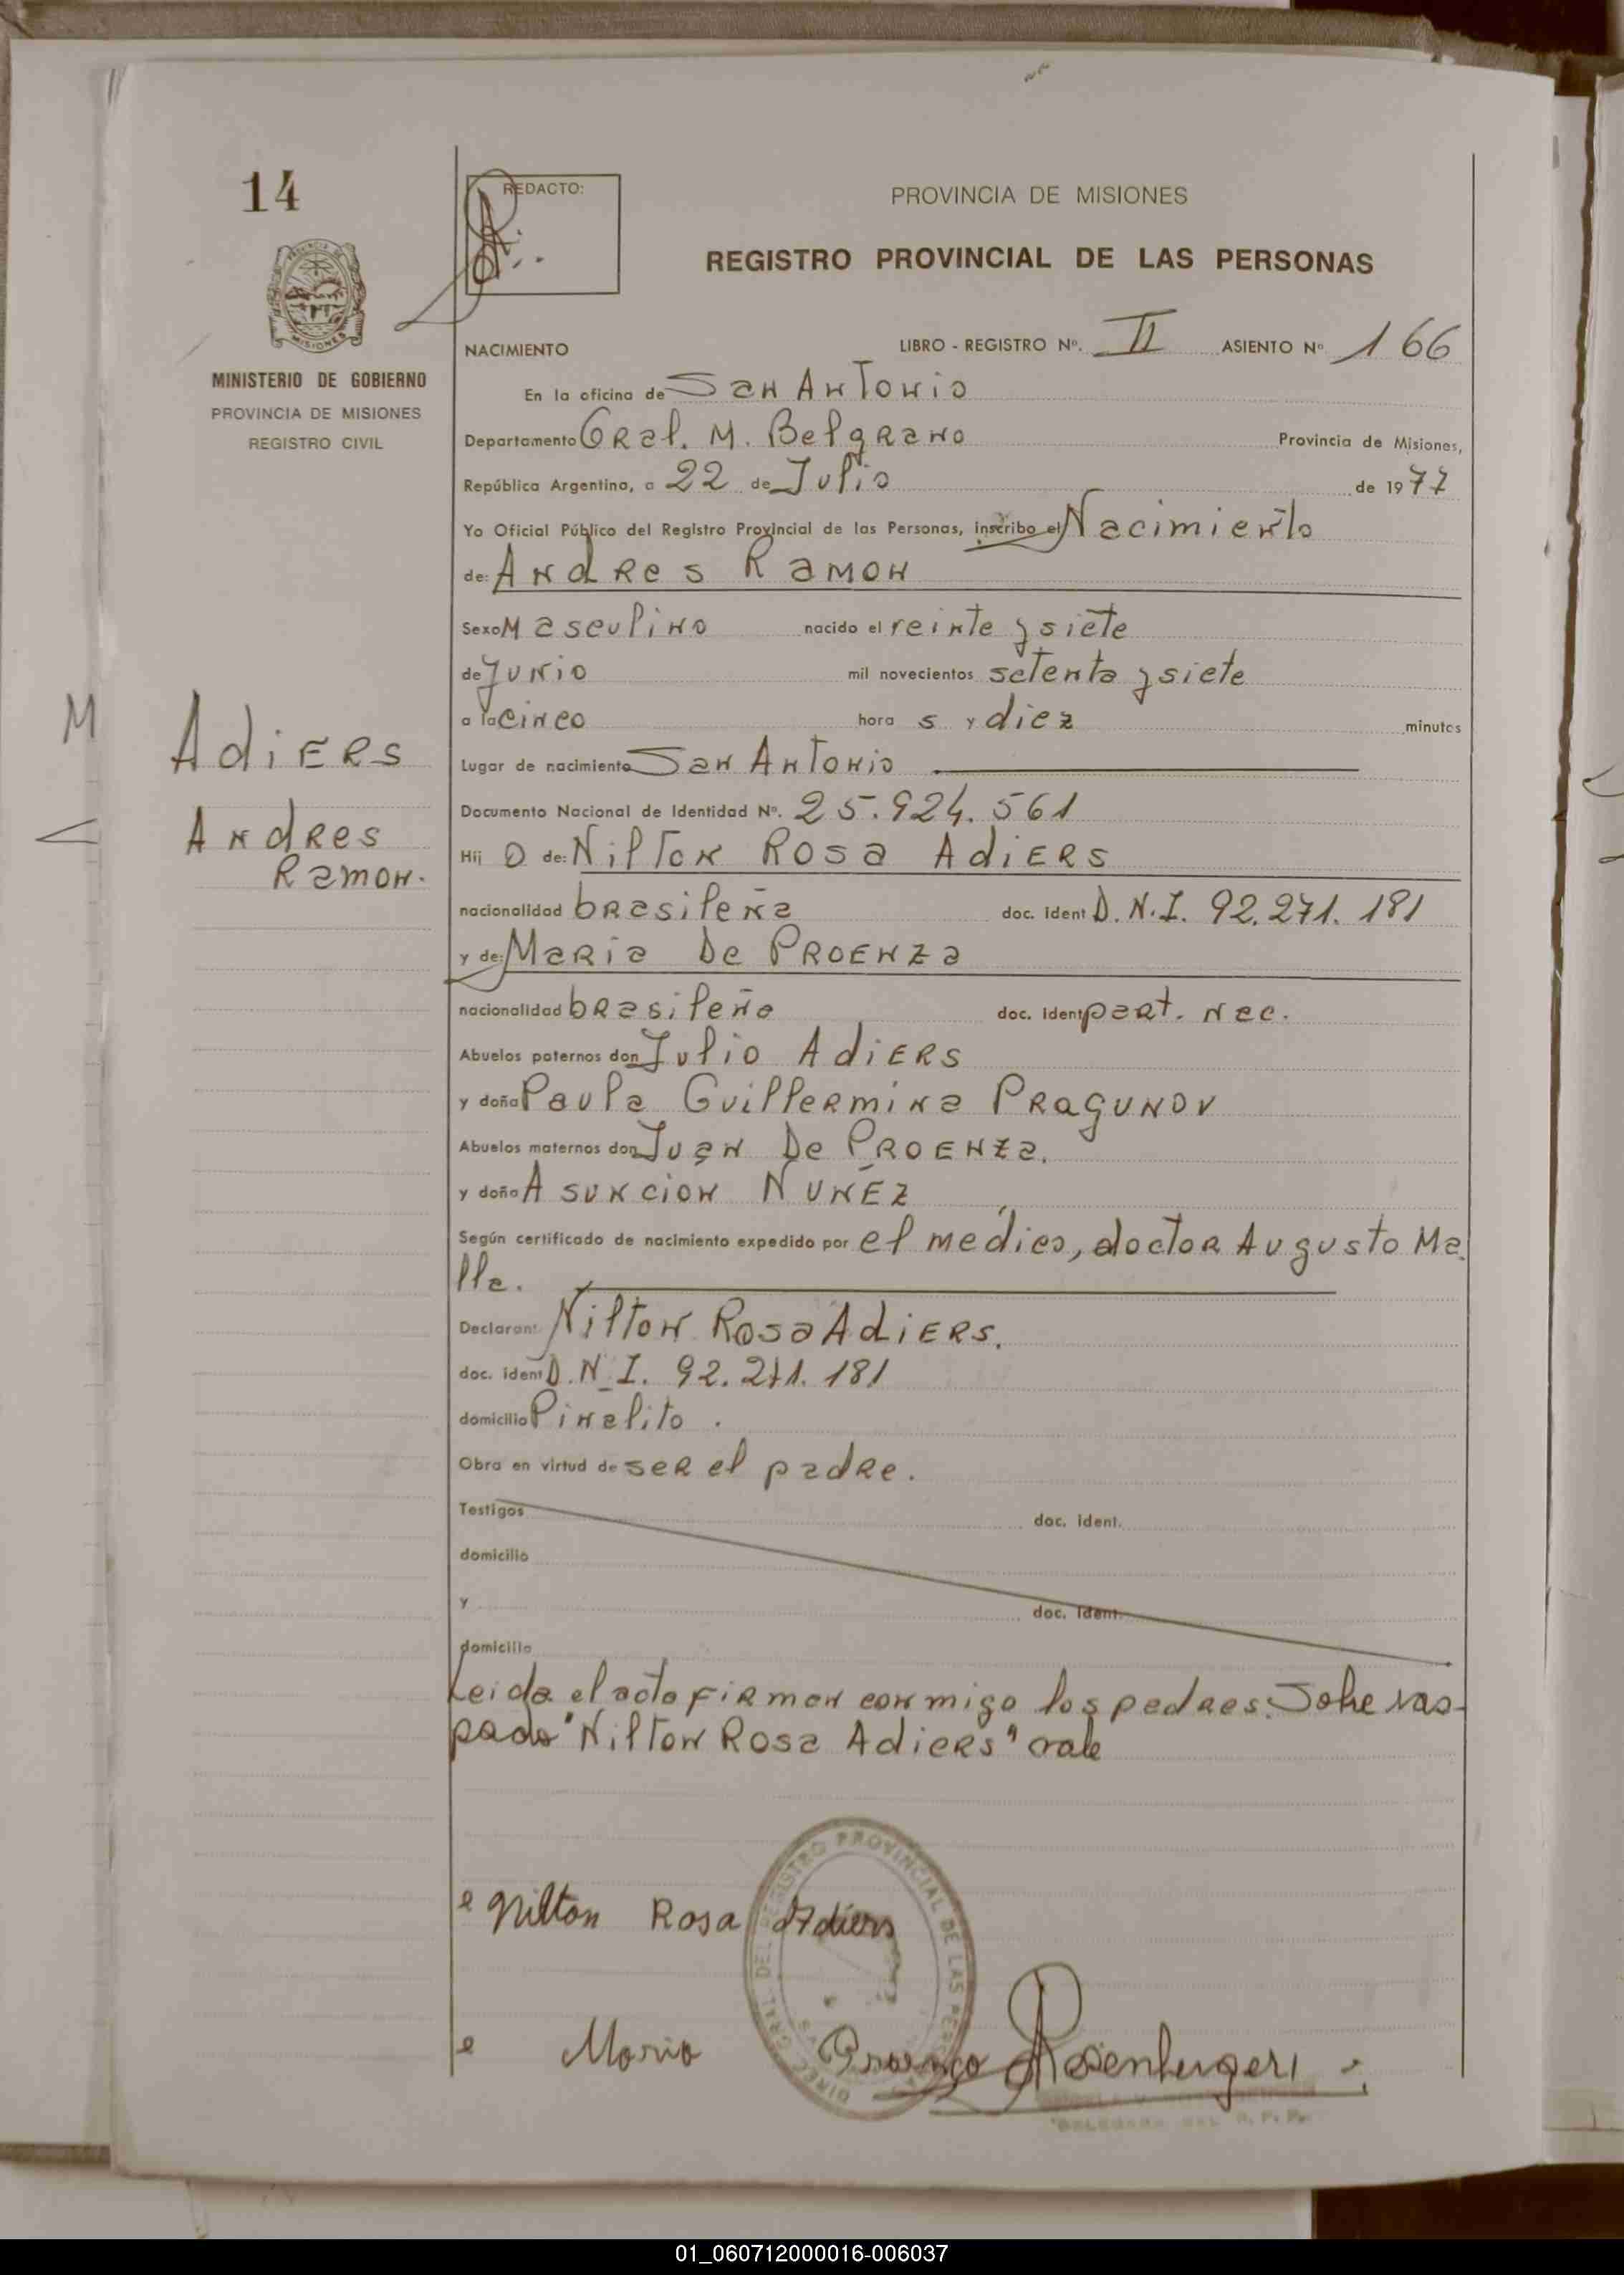 14
REDACTO:
PROVINCIA DE MISIONES
REGISTRO PROVINCIAL DE LAS PERSONAS
MINISTERIO DE GOBIERNO
PROVINCIA DE MISIONES
REGISTRO CIVIL
M
Adiers
Andres
Ramon.
NACIMIENTO LIBRO - REGISTRO Nº. II ASIENTO Nº 166
En la oficina de San Antonio
Departamento Gral. M. Belgrano Provincia de Misiones,
República Argentina, a 22 de Julio de 1977
Yo Oficial Público del Registro Provincial de las Personas, inscribo el Nacimiento
de: Andres Ramon
Sexo Masculino nacido el veinte y siete
de Junio mil novecientos setenta y siete
a la cinco hora s y diez minutos
Lugar de nacimiento San Antonio
Documento Nacional de Identidad Nº. 25.924.561
Hij o de: Nilton Rosa Adiers
nacionalidad brasileña doc. ident D.N.I. 92.271.181
y de: Maria De Proenza
nacionalidad brasileño doc. ident part. nac.
Abuelos paternos don Julio Adiers
y doña Paula Guillermina Pragunov
Abuelos maternos don Juan De Proenza.
y doña Asuncion Nuñez
Según certificado de nacimiento expedido por el medico, doctor Augusto Ma
lla.
Declarant Nilton Rosa Adiers.
doc. ident D.N.I. 92.271.181
domicilio Pinalito.
Obra en virtud de ser el padre.
Testigos doc. ident.
domicilio
y doc. ident.
domicilio
Leida el acta firman conmigo los padres. Sobre ras-
pado "Nilton Rosa Adiers" vale
Nilton Rosa Adiers
Maria Proenza
DELEGADA DEL R. P. P.
01_060712000016-006037